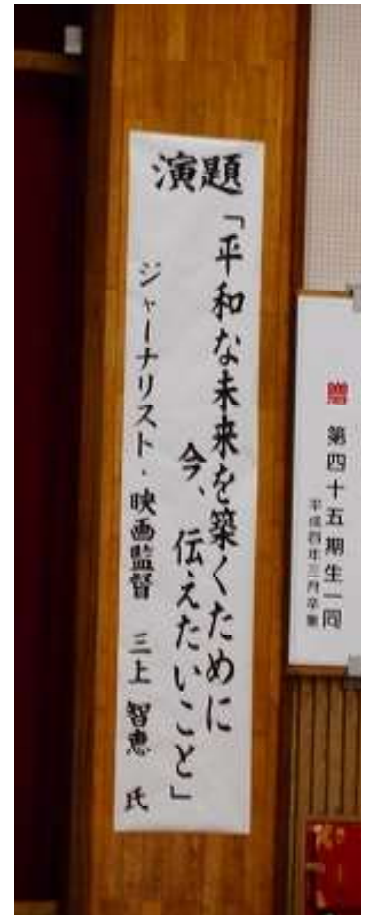 演題
「平和な未来を築くために
今、伝えたいこと」
ジャーナリスト・映画監督 三上 智恵 氏
贈 第四十五期生一同
平成四年三月卒業